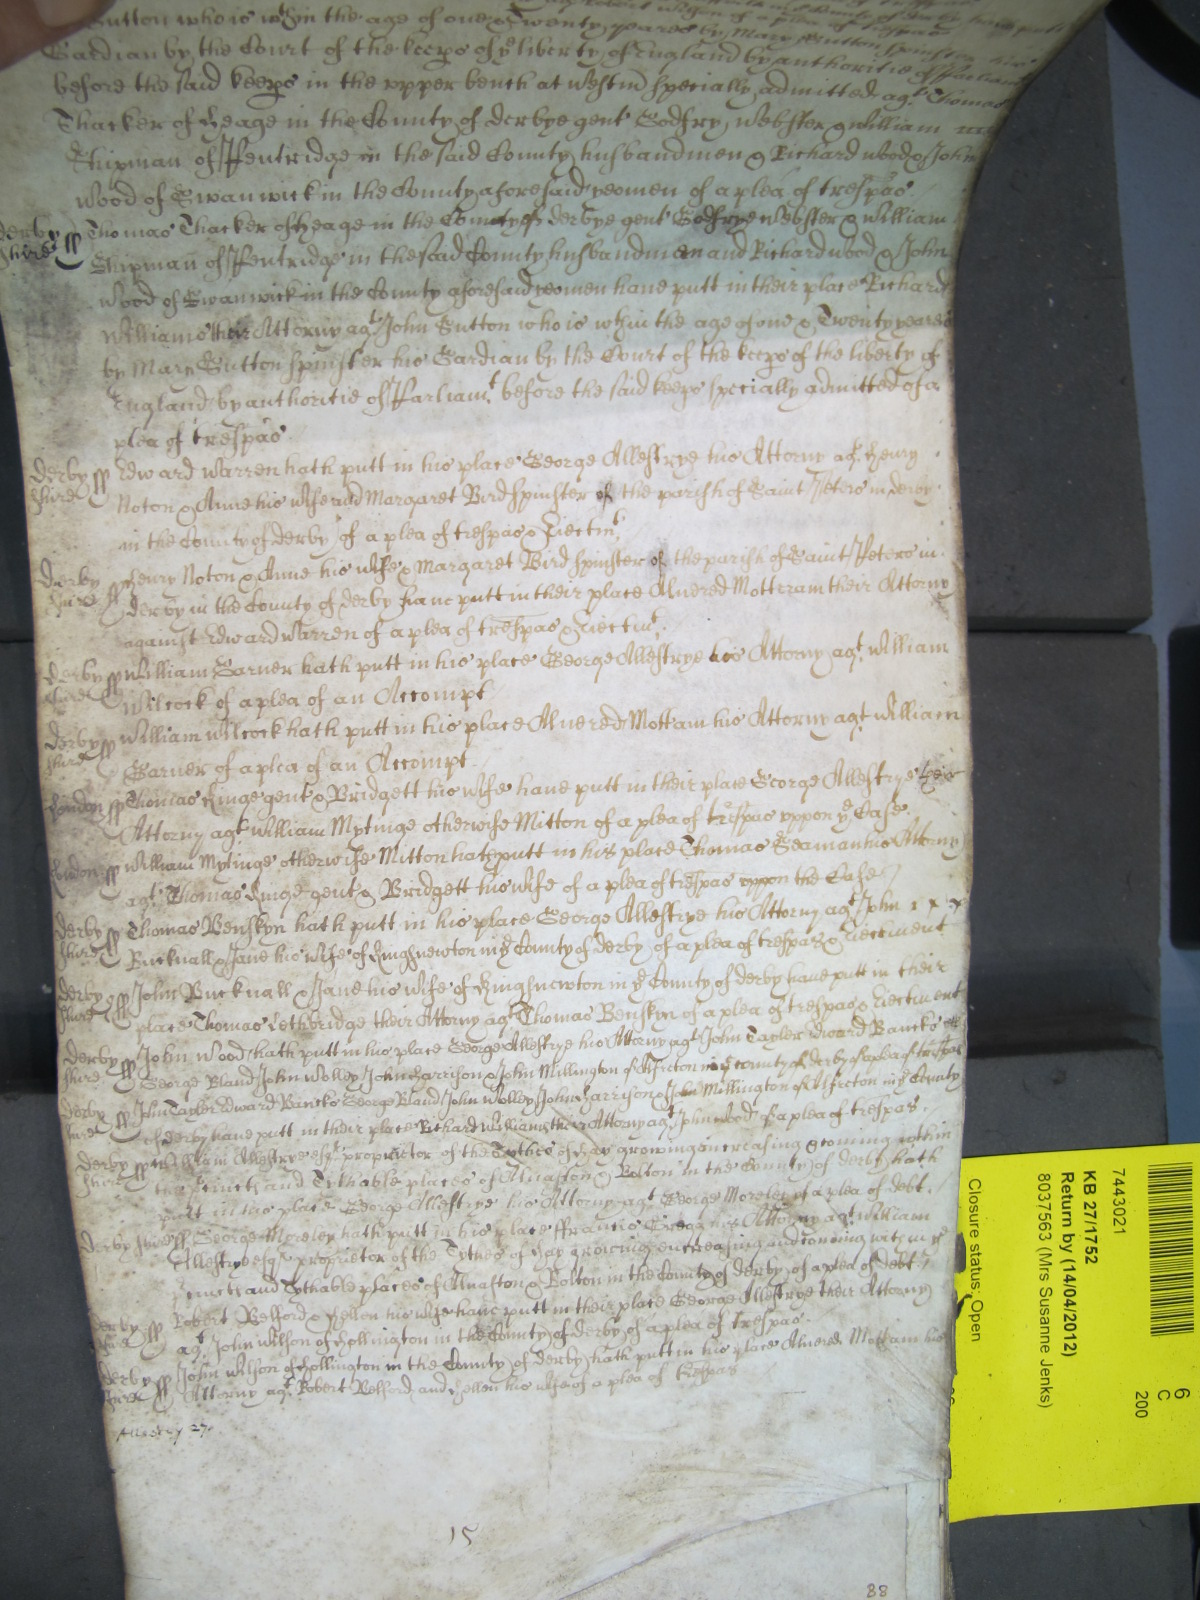 Sutton who is wthin the age of one & Twenty yeares by Mary Sutton spinster his
Gardian by the Court of the keeps of ye liberty of England by authoritie of Parliamt
before the said keeps in the upper bench at Westm specially admitted agt Thomas
Thacker of Heage in the County of Derbye gent Godfry Webster & William
Shipman of Pentridge in the said County husbandmen & Richard Wood & John
Wood of Swanwick in the County aforesaid yeomen of a plea of trespas
Derby shire ss Thomas Thacker of Heage in the County of Derbye gent Godfrye Webster & William
Shipman of Pentridge in the said County husbandmen and Richard Wood & John
Wood of Swanwick in the County aforesaid yeomen have putt in their place Richard
Williams their Attorny agt John Sutton who is wthin the age of one & Twenty yeares
by Mary Sutton spinster his Gardian by the Court of the keeps of the liberty of
England by authoritie of Parliamt before the said keeps specially admitted of a
plea of trespas
Derby shire ss Edward Warren hath putt in his place George Allestrye his Attorny agt Henry
Noton & Anne his wife and Margaret Bird spinster of the parish of Saint Peters in Derby
in the County of Derby of a plea of trespas & Eiectmt
Derby shire ss Henry Noton & Anne his wife & Margaret Bird spinster of the parish of Saint Peters in
Derby in the County of Derby have putt in their place Alvered Mottram their Attorny
against Edward Warren of a plea of trespas & Eiectmt
Derby shire ss William Garner hath putt in his place George Allestrye his Attorny agt William
Wilcock of a plea of an Accompt
Derby shire ss William Wilcock hath putt in his place Alvered Mottam his Attorny agt William
Garner of a plea of an Accompt
London ss Thomas Kinge gent & Bridgett his wife have putt in their place George Allestrye their
Attorny agt William Mytinge otherwise Mitton of a plea of trespas uppon ye Case
London ss William Mytinge otherwise Mitton hath putt in his place Thomas Seaman his Attorny
agt Thomas Kinge gent & Bridgett his wife of a plea of trespas uppon the Case
Derby shire ss Thomas Benskyn hath putt in his place George Allestrye his Attorny agt John
Bucknall & Jane his wife of Kingsnewton in ye County of Derby of a plea of trespas & Eiectment
Derby shire ss John Bucknall & Jane his wife of Kingsnewton in ye County of Derby have putt in their
place Thomas Lethbridge their Attorny agt Thomas Benskyn of a plea of trespas & Eiectment
Derby shire ss John Wood hath putt in his place George Allestrye his Attorny agt John Tayler Edward Bancks
George Bland John Wolley John Harrison & John Millington of Alfreton in ye County of Derby of a plea of trespas
Derby shire ss John Tayler Edward Bancks George Bland John Wolley John Harrison & John Millington of Alfreton in ye County
of Derby have putt in their place Richard Williams their Attorny agt John Wood of a plea of trespas
Derby shire ss William Allestrye esqr proprietor of the Tythes of Hay growing increasing & coming within
the precincts and Tythable places of Alvaston & Bolton in the County of Derby hath
putt in his place George Allestrye his Attorny agt George Moreley of a plea of debt
Derby shire ss George Moreley hath putt in his place ffrancis his Attorny agt William
Allestrye esqr proprietor of the Tythes of Hay growing encreasing and coming within ye
precincts and Tythable places of Alvaston & Bolton in the County of Derby of a plea of debt
Derby shire ss Robert Belford & Hellen his wife have putt in their place George Allestrye their Attorny
agt John Wilson of Hollington in the County of Derby of a plea of trespas
Derby shire ss John Wilson of Hollington in the County of Derby hath putt in his place Alvered Mottam his
Attorny agt Robert Belford and Hellen his wife of a plea of trespas
27
15
88
7443021
KB 27/1752
Return by (14/04/2012)
8037563 (Mrs Susanne Jenks)
Closure status: Open
6
C
200